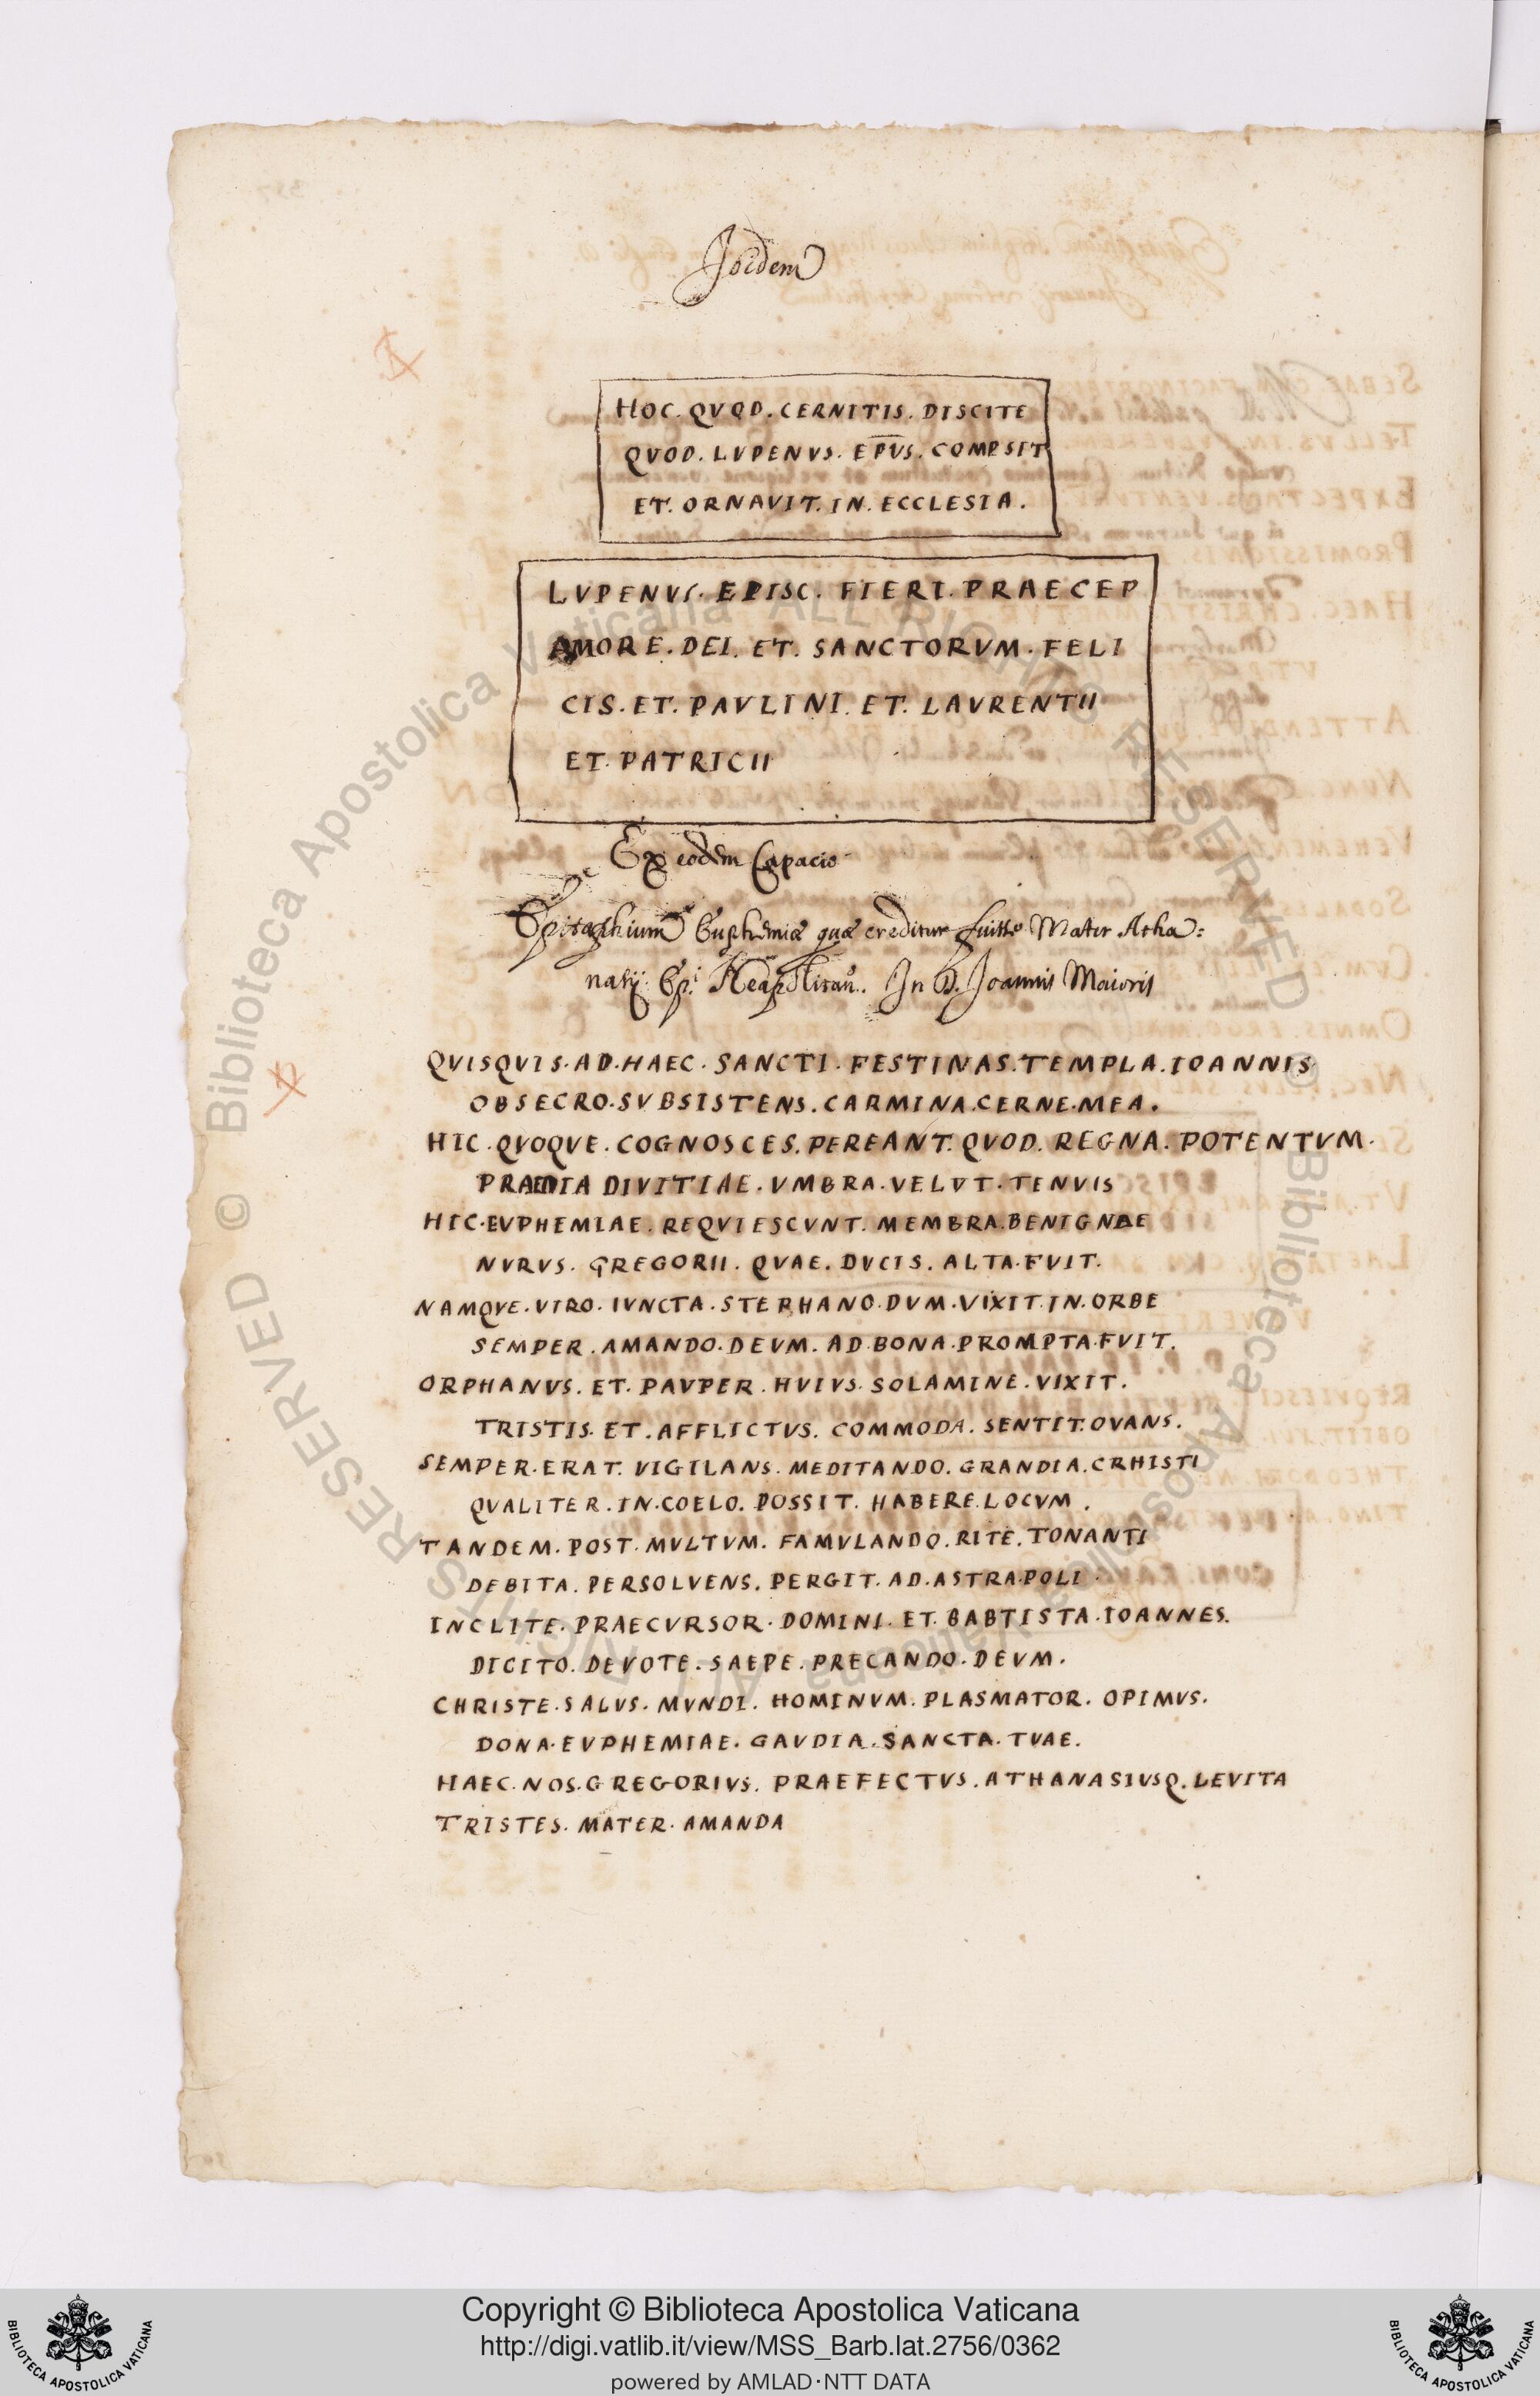 Ibidem
HOC. QVOD. CERNITIS. DISCITE
QVOD. LVPENVS. EPVS. COMPSIT
ET. ORNAVIT. IN. ECCLESIA.
LVPENVS. EPISC. FIERI. PRAECEP
AMORE. DEI. ET. SANCTORVM. FELI
CIS. ET. PAVLINI. ET. LAVRENTII
ET. PATRICII
Ex eodem Capacio
Epitaphium Euphemiæ quæ creditur fuisse Mater Atha:
nasij Ep.i Neapolitan. In D. Joannis Maioris
QVISQVIS. AD. HAEC. SANCTI. FESTINAS. TEMPLA. IOANNIS
OBSECRO. SVBSISTENS. CARMINA. CERNE. MEA.
HIC. QVOQVE. COGNOSCES. PEREANT. QVOD. REGNA. POTENTVM.
PRAEDIA DIVITIAE. VMBRA. VELVT. TENVIS
HIC. EVPHEMIAE. REQVIESCVNT. MEMBRA. BENIGNAE
NVRVS. GREGORII. QVAE. DVCIS. ALTA. FVIT.
NAMQVE. VIRO. IVNCTA. STEPHANO. DVM. VIXIT. IN. ORBE
SEMPER. AMANDO. DEVM. AD. BONA. PROMPTA. FVIT.
ORPHANVS. ET. PAVPER. HVIVS. SOLAMINE. VIXIT.
TRISTIS. ET. AFFLICTVS. COMMODA. SENTIT. OVANS.
SEMPER. ERAT. VIGILANS. MEDITANDO. GRANDIA. CRHISTI
QVALITER. IN. COELO. POSSIT. HABERE. LOCVM.
TANDEM. POST. MVLTVM. FAMVLANDO. RITE. TONANTI
DEBITA. PERSOLVENS. PERGIT. AD. ASTRA. POLI.
INCLITE. PRAECVRSOR. DOMINI. ET. BABTISTA. IOANNES.
DICITO. DEVOTE. SAEPE. PRECANDO. DEVM.
CHRISTE. SALVS. MVNDI. HOMINVM. PLASMATOR. OPIMVS.
DONA. EVPHEMIAE. GAVDIA. SANCTA. TVAE.
HAEC. NOS. GREGORIVS. PRAEFECTVS. ATHANASIVSQ. LEVITA
TRISTES. MATER. AMANDA
Copyright © Biblioteca Apostolica Vaticana
http://digi.vatlib.it/view/MSS_Barb.lat.2756/0362
powered by AMLAD·NTT DATA
BIBLIOTECA APOSTOLICA VATICANA
BIBLIOTECA APOSTOLICA VATICANA
© Biblioteca Apostolica Vaticana ALL RIGHTS RESERVED
© Biblioteca Apostolica Vaticana ALL RIGHTS RESERVED